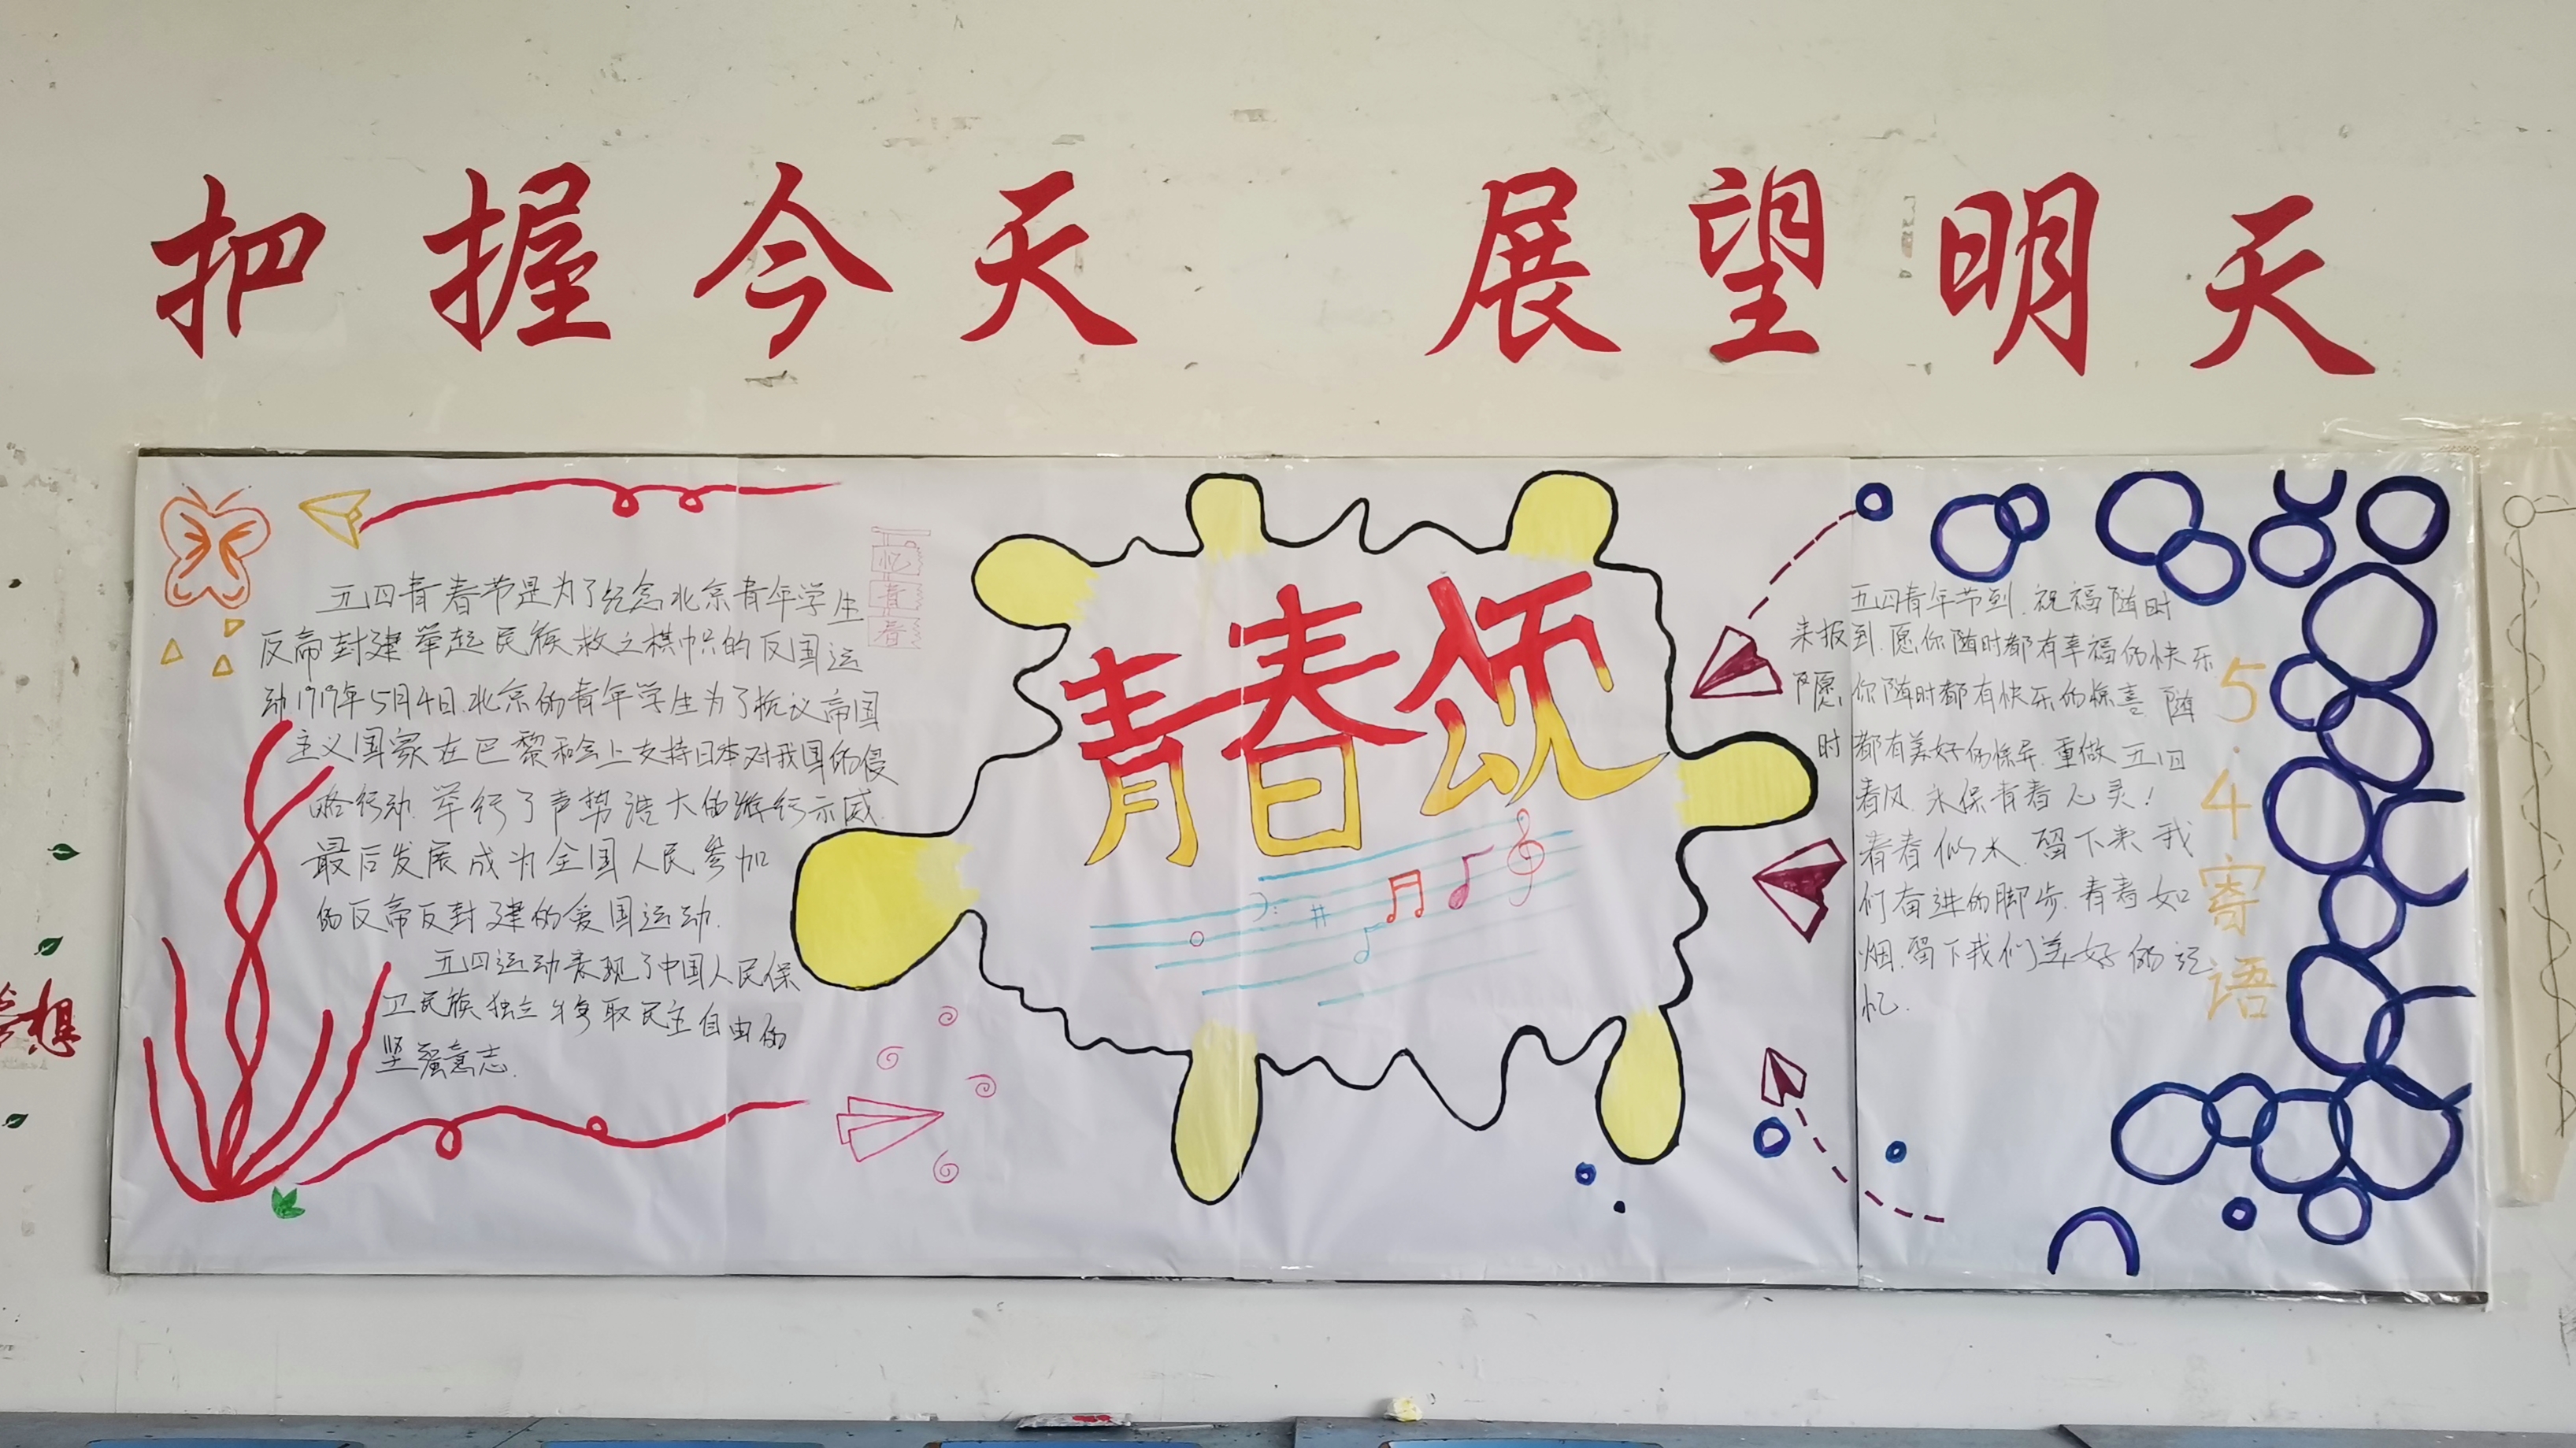 把握今天 展望明天
忆青春
五四青春节是为了纪念北京青年学生
反帝封建举起民族救之棋帜的反国运
动1919年5月4日.北京的青年学生为了抗议帝国
主义国家在巴黎和会上支持日本对我国的侵
略行动.举行了声势浩大的游行示威.
最后发展成为全国人民参加
的反帝反封建的爱国运动.
五四运动表现了中国人民保
卫民族独立 取民主自由的
坚强意志.
青春颂
五四青年节到.祝福随时
来报到.愿你随时都有幸福的快乐
愿你随时都有快乐的惊喜.随
时都有美好的惊异.重做五四
春风.永保青春心灵!
青春似水.留下来我
们奋进的脚步.青春如
烟.留下我们美好的记
忆.
5.4寄语
想